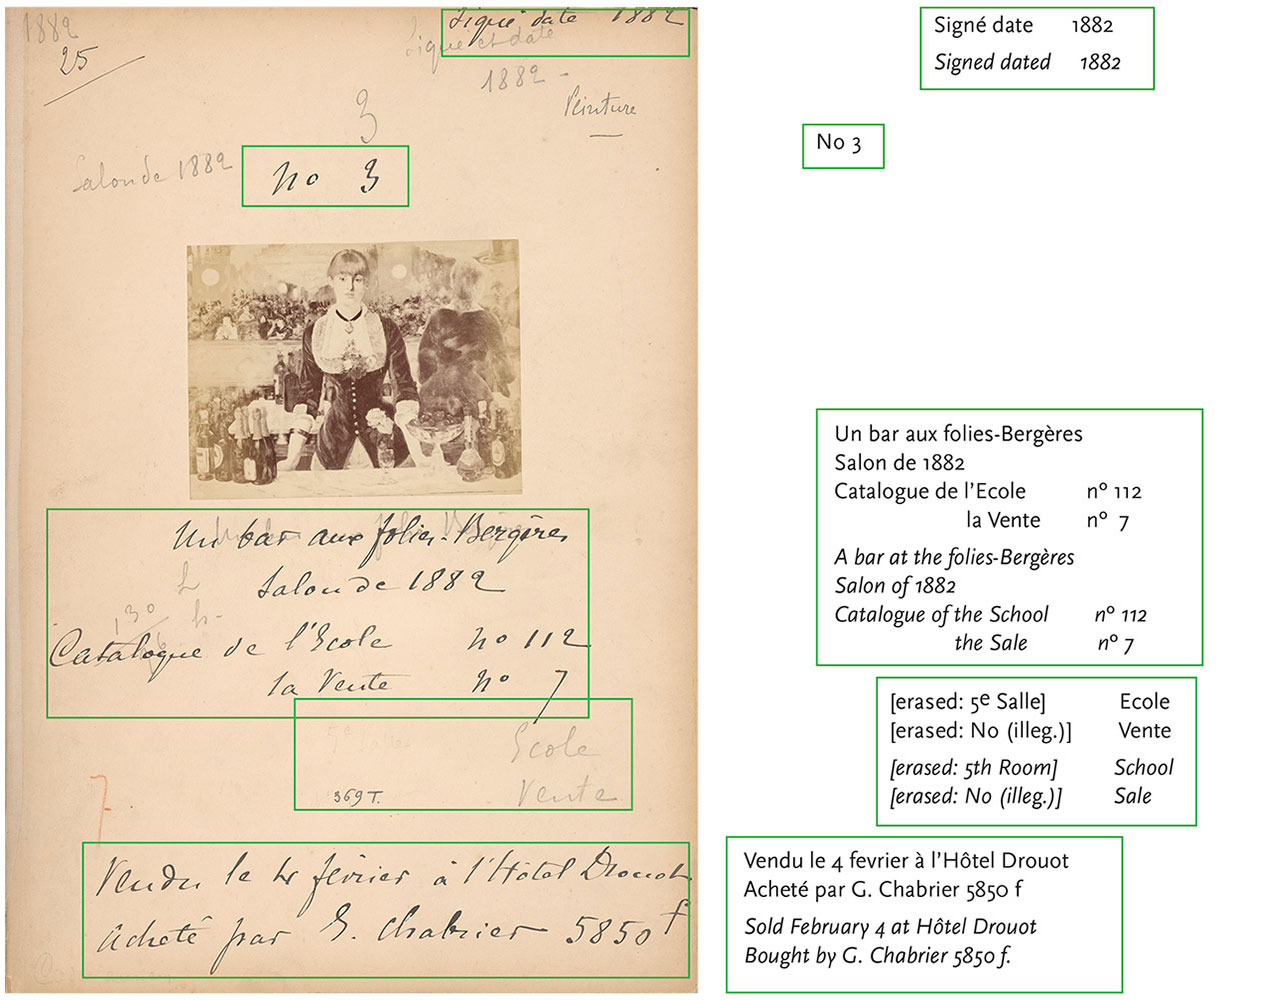 1882
25
Signé date 1882
Signé et date
1882 -
Peinture
3
Salon de 1882
No 3
Un bar aux folies-Bergères
Salon de 1882
Catalogue de l'Ecole no 112
la Vente no 7
5e Salle Ecole
369 T. Vente
7
Vendu le 4 février à l'Hôtel Drouot
Acheté par G. Chabrier 5850 f
Signé date 1882
Signed dated 1882
No 3
Un bar aux folies-Bergères
Salon de 1882
Catalogue de l'Ecole nº 112
la Vente nº 7
A bar at the folies-Bergères
Salon of 1882
Catalogue of the School nº 112
the Sale nº 7
[erased: 5e Salle] Ecole
[erased: No (illeg.)] Vente
[erased: 5th Room] School
[erased: No (illeg.)] Sale
Vendu le 4 fevrier à l'Hôtel Drouot
Acheté par G. Chabrier 5850 f
Sold February 4 at Hôtel Drouot
Bought by G. Chabrier 5850 f.